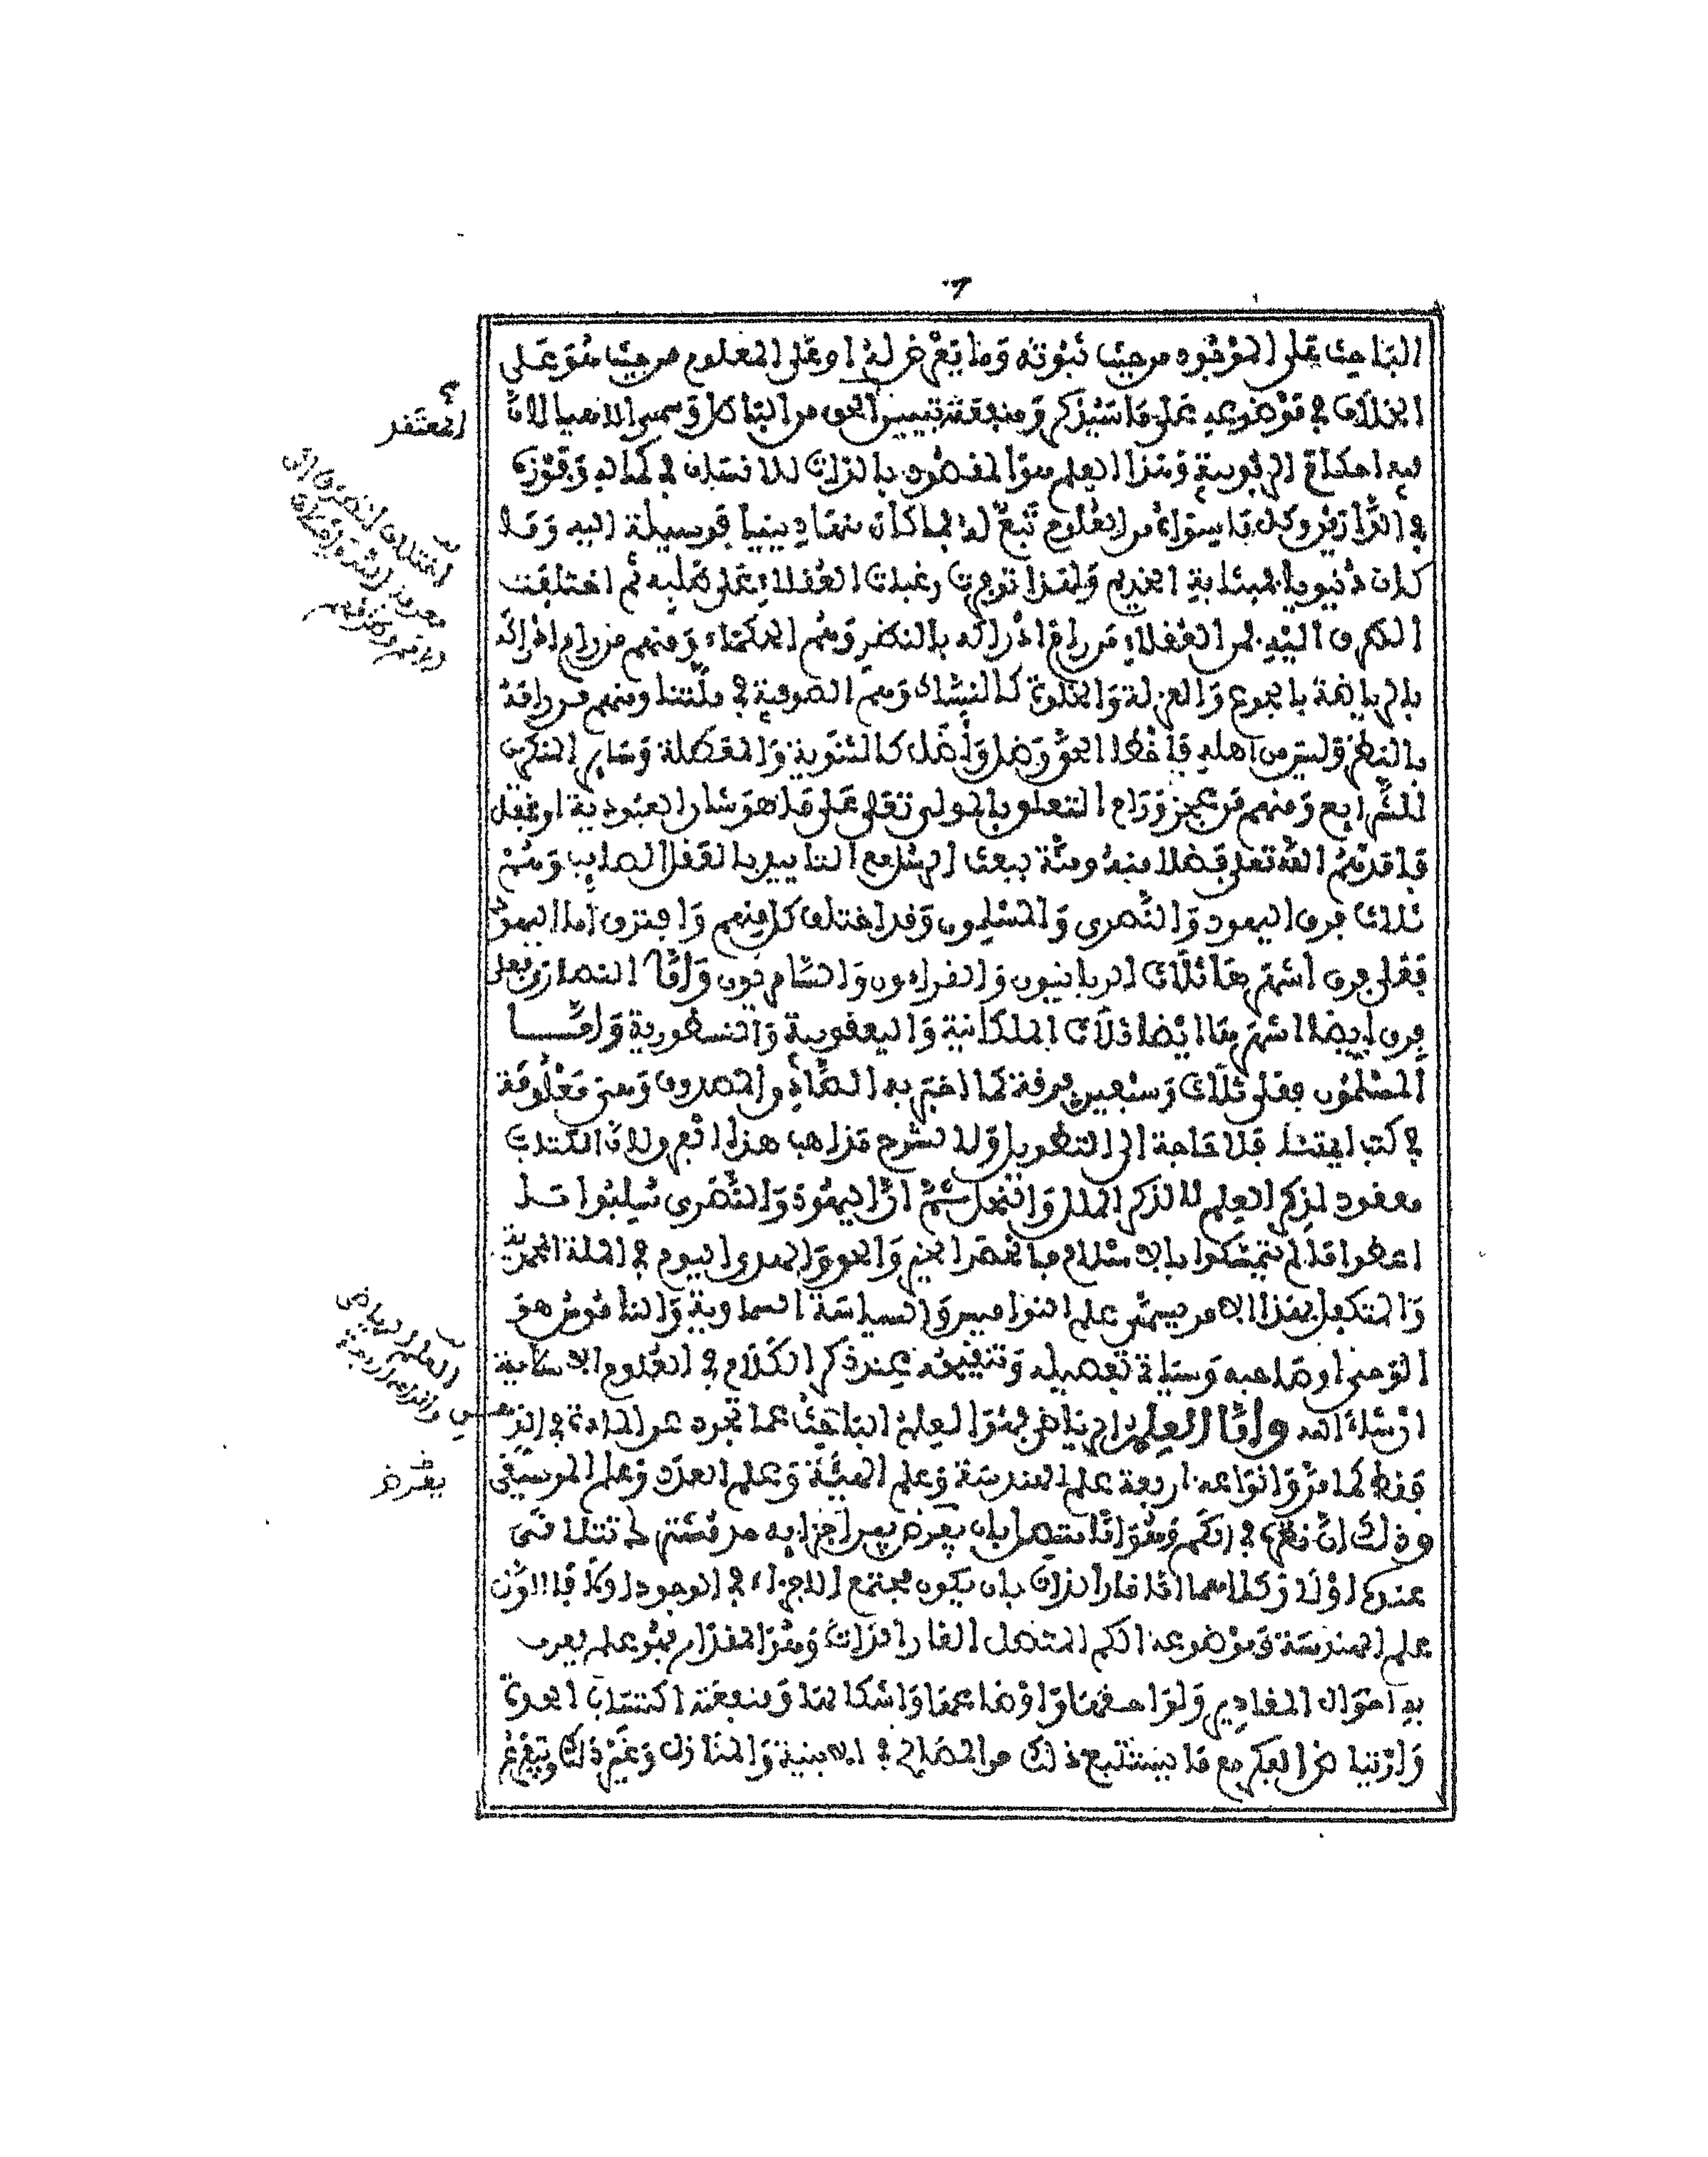 ٦
الباحث على الموجود من حيث ثبوته وما يعرض له او على المعلوم من حيث هو على
الخلاف في موضوعه على ما سيذكر ومنفعته تبيين الحق من الباطل وسمي الالاهيا لان
فيه احكام الربوبية وهذا العلم هو المقصود بالذات للانسان في كماله وفوزه
في الدارين وكل ما سواه من العلوم تبع له فما كان منها دينيا فوسيلة اليه وما
كان دنيويا فبمثابة الخديم ولهذا توجهت رغبات العقلاء على طلبه ثم اختلفت
الطرق اليه فمن العقلاء من رام ادراكه بالنظر وهم الحكماء ومنهم من رام ادراكه
بالرياضة بالجوع والعزلة والخلوة كالنساك وهم الصوفية في ملتنا ومنهم من رامه
بالنظر وليس من اهله فاخطا الحق وضل واضل كالثنوية والمعطلة وساير المنكرين
للشرايع ومنهم من عجز ورام التعلق بالمولى تعلى على ما هو شان العبودية او غفل
فامدهم الله تعلى فضلا منه ومنة ببعث الرسل مع التاييد بالعقل الصايب وهم
ثلاث فرق اليهود والنصرى والمسلمون وقد اختلف كل منهم وافترق اما اليهود
فعلى فرق اشهرها ثلاث الربانيون والقراءون والسامريون واما النصارى فعلى
فرق ايضا اشهرها ايضا ثلاث الملكانية واليعقوبية والنسطورية واما
المسلمون فعلى ثلاث وسبعين فرقة كما اخبر به الصادق المصدوق وهي معلومة
في كتب ايمتنا فلا حاجة الى التطويل ولا لشرح مذاهب هذه الفرق لان الكتاب
معقود لذكر العلم لا لذكر الملل والنحل ثم ان اليهود والنصرى سلبوا ما
اعطوا ما لم يتمسكوا بالاسلام فانحصر الخير والحق والهدى اليوم في الملة المحمدية
والمتكفل بهذا الامر يسمى علم النواميس والسياسة السماوية والناموس هو
الوحي او صاحبه وسياتي تفصيله وتنقيحه عند ذكر الكلام في العلوم الاسلامية
ان شاء الله واما العلم الرياضي فهو العلم الباحث عما تجرد عن المادة في الذهن
فقط كما مر وانواعه اربعة علم الهندسة وعلم الهيئة وعلم العدد وعلم الموسيقى
وذلك ان نظره في الكم وهو اما متصل بان يفرض بين اجزايه حد مشترك تتلاقى
عنده او لا وكل منهما اما قار الذات بان يكون مجتمع الاجزاء في الوجود او لا فالاول
علم الهندسة وموضوعه الكم المتصل القار الذات وهو المقدار فهو علم يعرف
به احوال المقادير ولواحقها واوضاعها واشكالها ومنفعته اكتساب الحدة
وارتياض الفكر مع ما يستتبع ذلك من المصالح في الابنية والمنازل وغير ذلك ويتفرع
المعتقر
اختلاف الطرق الى
العلم الرياضي
وانواعه اربعة
يفرض